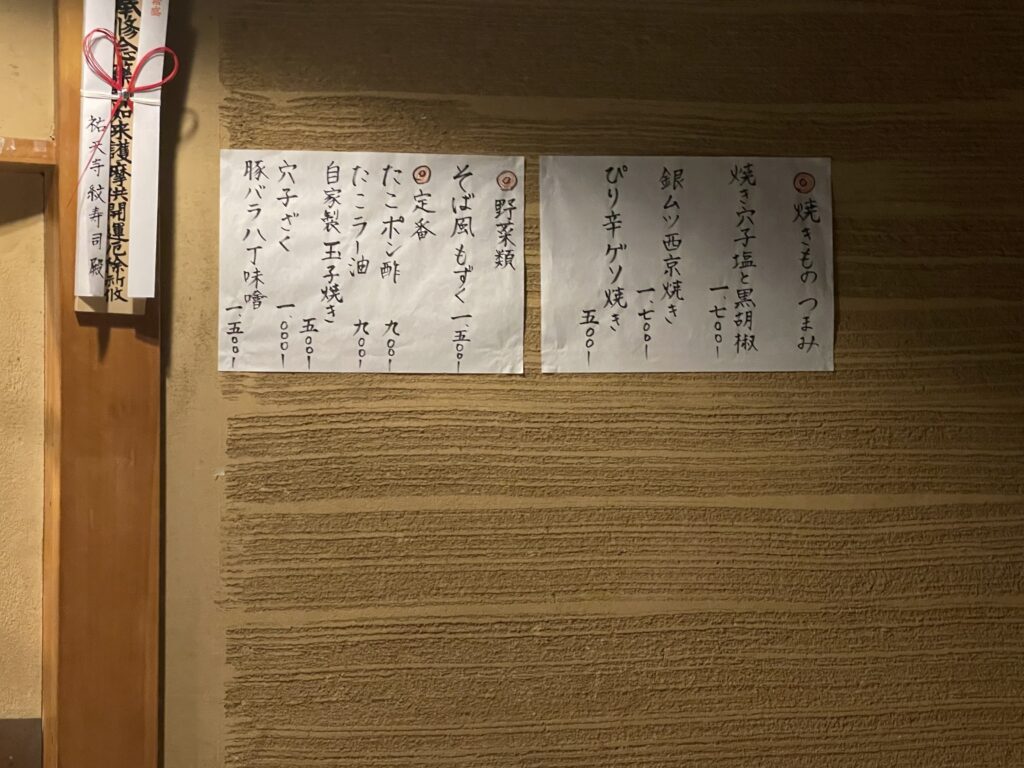 ◎焼きもの つまみ
焼き穴子塩と黒胡椒 一、七〇〇ー
銀ムツ西京焼き 一、七〇〇ー
ぴり辛ゲソ焼き 五〇〇ー
◎野菜類
そば風もずく 一、五〇〇ー
◎定番
たこポン酢 九〇〇ー
たこラー油 九〇〇ー
自家製玉子焼き 五〇〇ー
穴子ざく 一、〇〇〇ー
豚バラ八丁味噌 一、五〇〇ー
如来護摩供開運厄除祈攸
祐天寺紋寿司殿